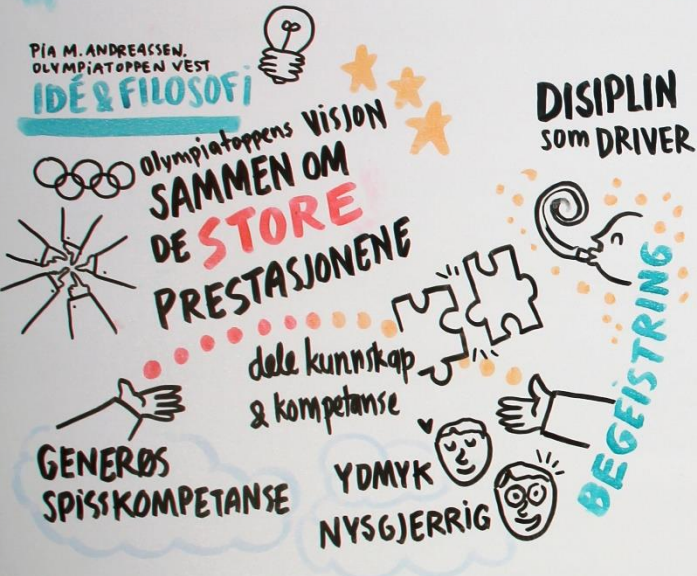 PIA M. ANDREASSEN.
OLYMPIATOPPEN VEST
IDÉ & FILOSOFI
Olympiatoppens VISJON
SAMMEN OM
DE STORE
PRESTASJONENE
DISIPLIN
som DRIVER
BEGEISTRING
dele kunnskap
& kompetanse
GENERØS
SPISSKOMPETANSE
YDMYK
NYSGJERRIG